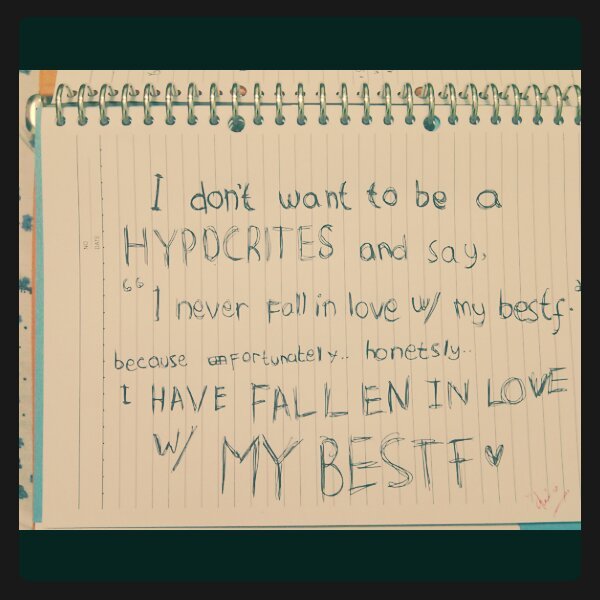 I don't want to be a
HYPOCRITES and say,
"I never fall in love w/ my bestf."
because unfortunately.. honetsly..
I HAVE FALLEN IN LOVE
W/ MY BESTF♥
NO
DATE